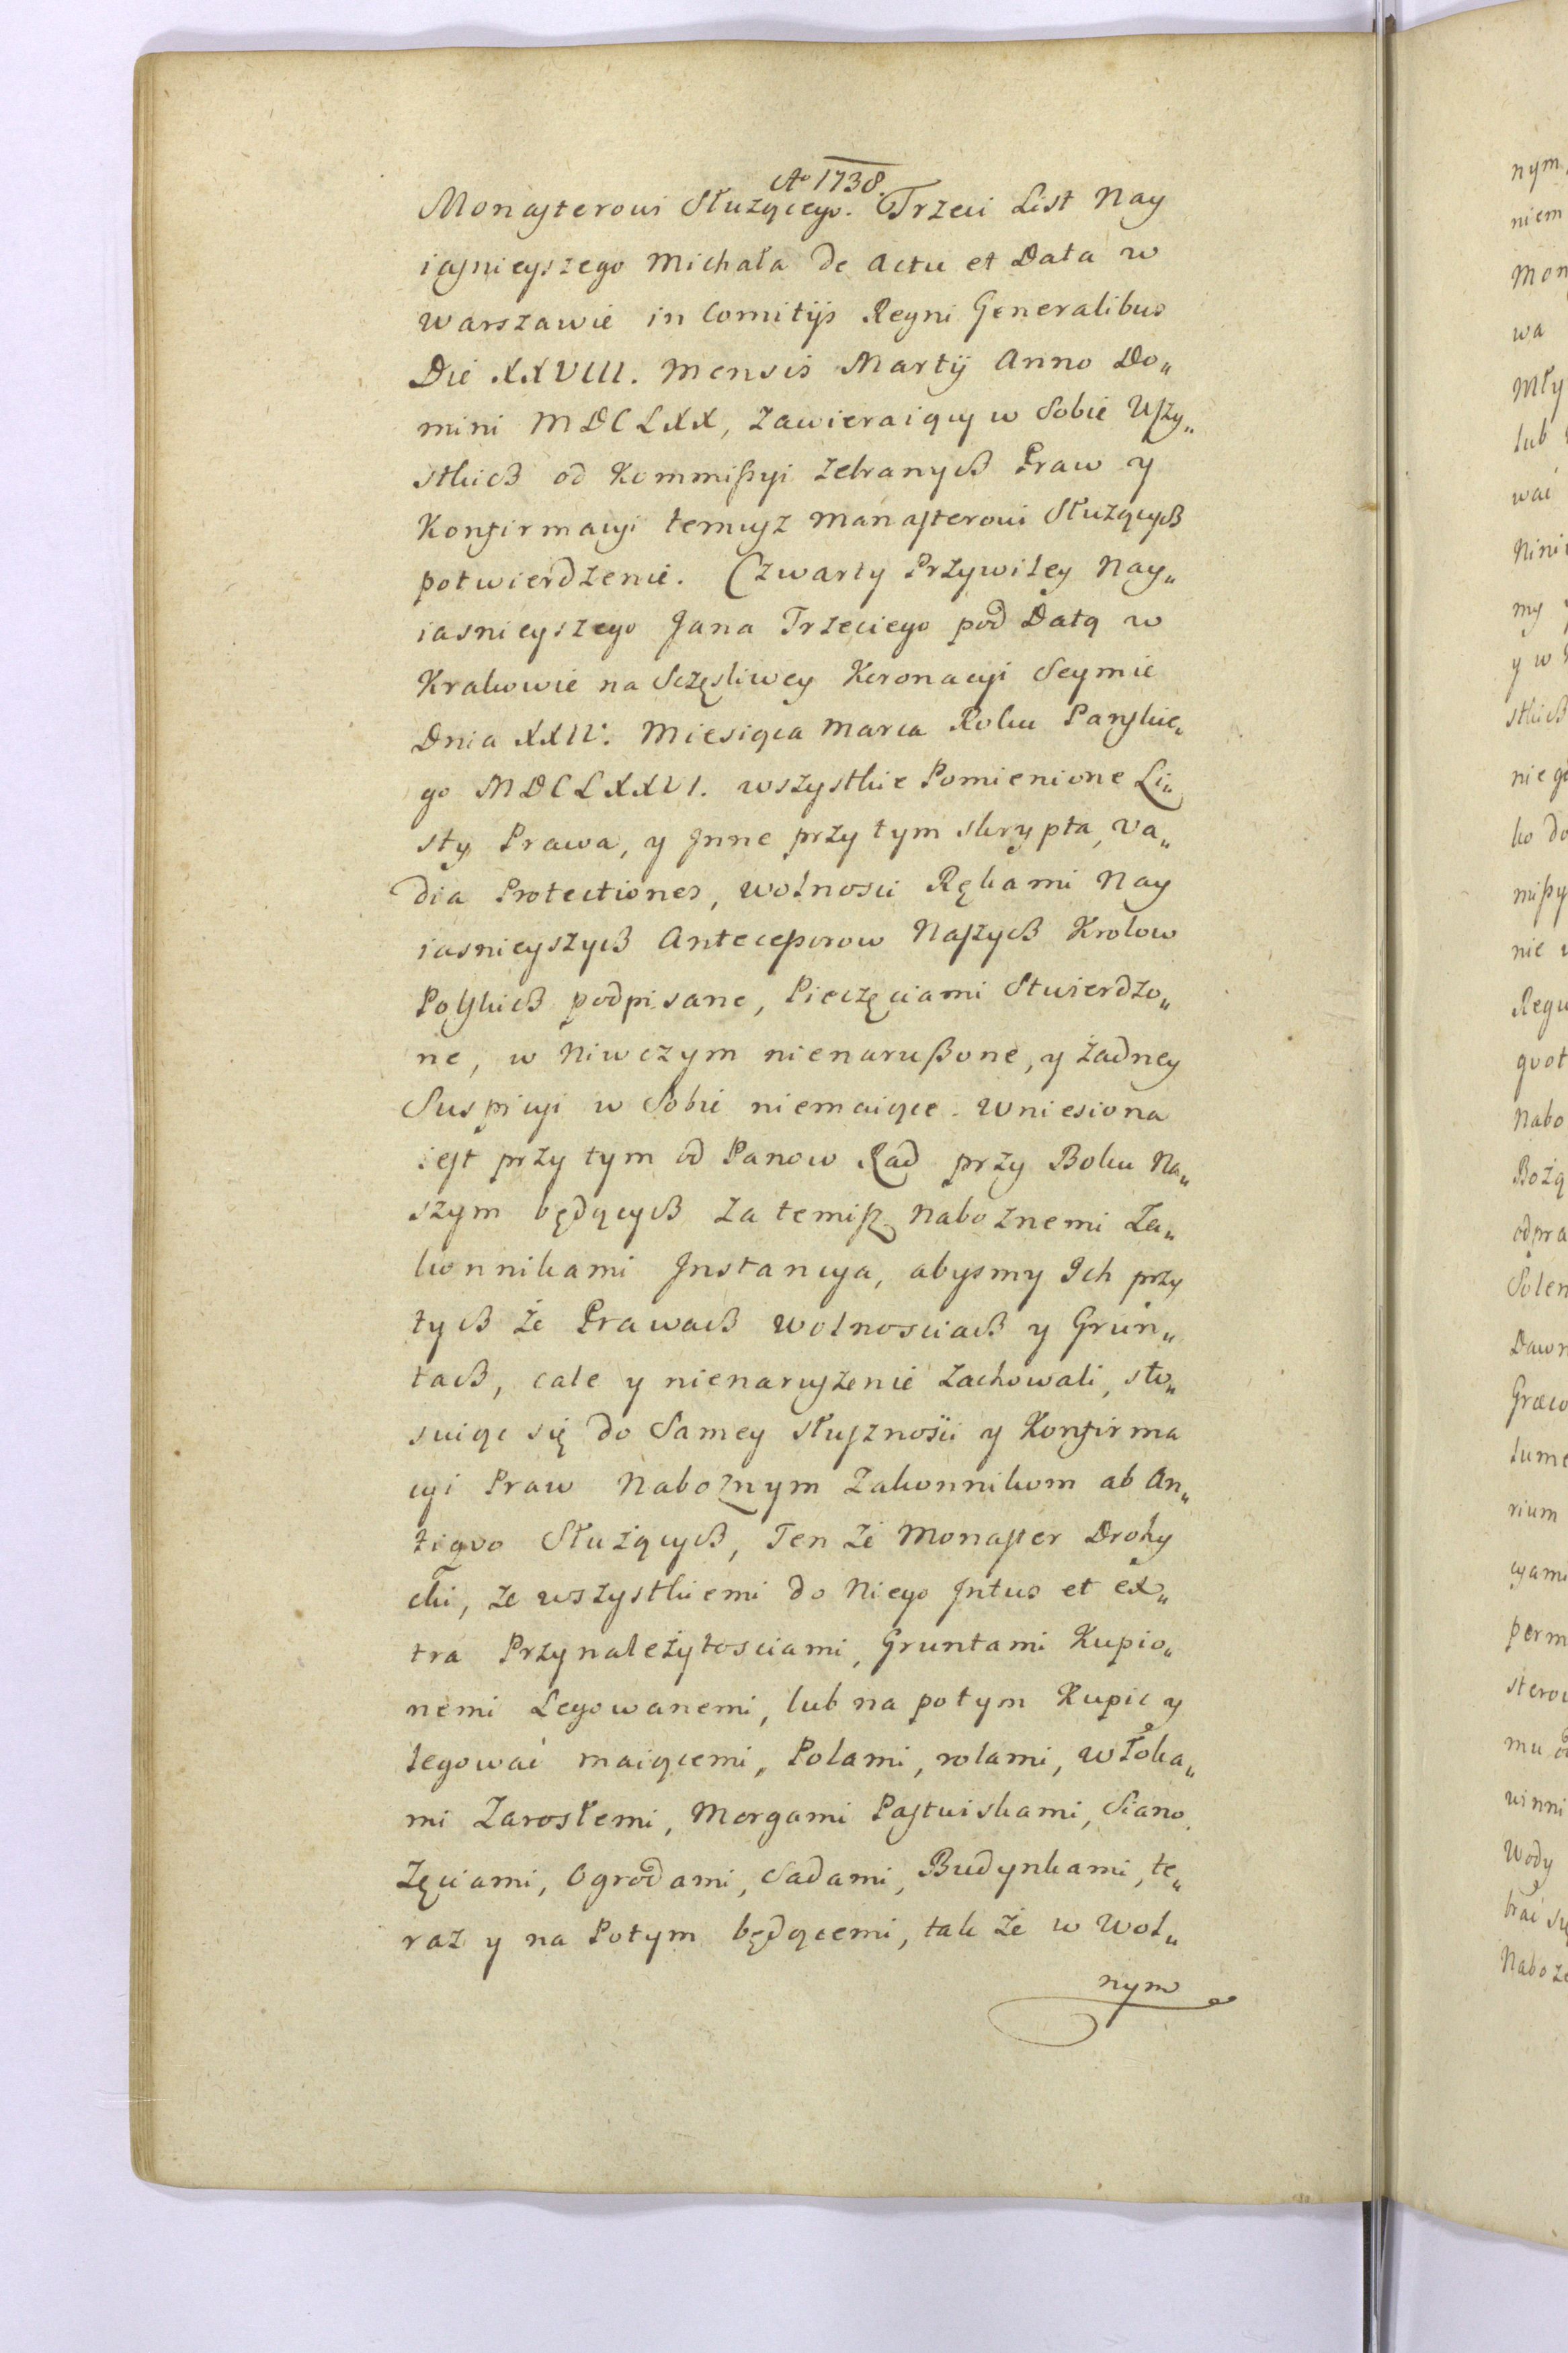 Ao 1738.
Monasterowi Służącego. Trzeci List Nay
iasnieyszego Michała de Actu et Data w
Warszawie in Comitijs Regni Generalibus
Die XXVIII. Mensis Martij Anno Do„
mini MDCLXX, Zawieraiący w Sobie Wszy„
stkich od Kommissyi zebranych Praw y
Konfirmacyi temusz Manasterowi Służących
potwierdzenie. Czwarty Przywiley Nay„
iasnieyszego Jana Trzeciego pod Datą w
Krakowie na Sczęsliwey Koronacyi Seymie
Dnia XXIV. Miesiąca Marca Roku Panskie„
go MDCLXXVI. wszystkie Pomienione Li„
sty Prawa, y Jnne przy tym skrypta, va„
dia Protectiones, wolnosci Rękami Nay
iasnieyszych Antecessorow Naszych Krolow
Polskich podpisane, Pieczęciami Stwierdzo„
ne, w Niwczym nienarußone, y żadney
Suspicyi w Sobie niemaiące. Wniesiona
iest przy tym od Panow Rad przy Boku Na„
szym będących za temisz Nabożnemi Za„
konnikami Jnstancya, abysmy Ich przy
tych że Prawach wolnosciach y Grun„
tach, cale y nienaruszenie zachowali, sto„
suiąc się do Samey słusznosci y Konfirma
cyi Praw Nabożnym Zakonnikom ab An„
tiqvo Służących, Ten że Monaster Drohy
cki, ze wszystkiemi do Niego Jntus et ex„
tra Przynależytosciami, Gruntami Kupio„
nemi Legowanemi, lub na potym Kupic y
legować maiącemi, Polami, rolami, włoka„
mi Zarosłemi, Morgami Pastwiskami, Siano
Zęciami, Ogrodami, Sadami, Budynkami, te„
raz y na Potym będącemi, tak że w Wol„
nym
nym,
niem
Mon
wa
Mły
lub
wać
Nini
my
y w
stkich
nie
ko do
missy
nie
Regu
quot
Nabo
Bożą
odpra
Solen
Dawn
Græco
lume
rium
cyami
perm
sterow
mu
winni
Wody
brać
Naboże